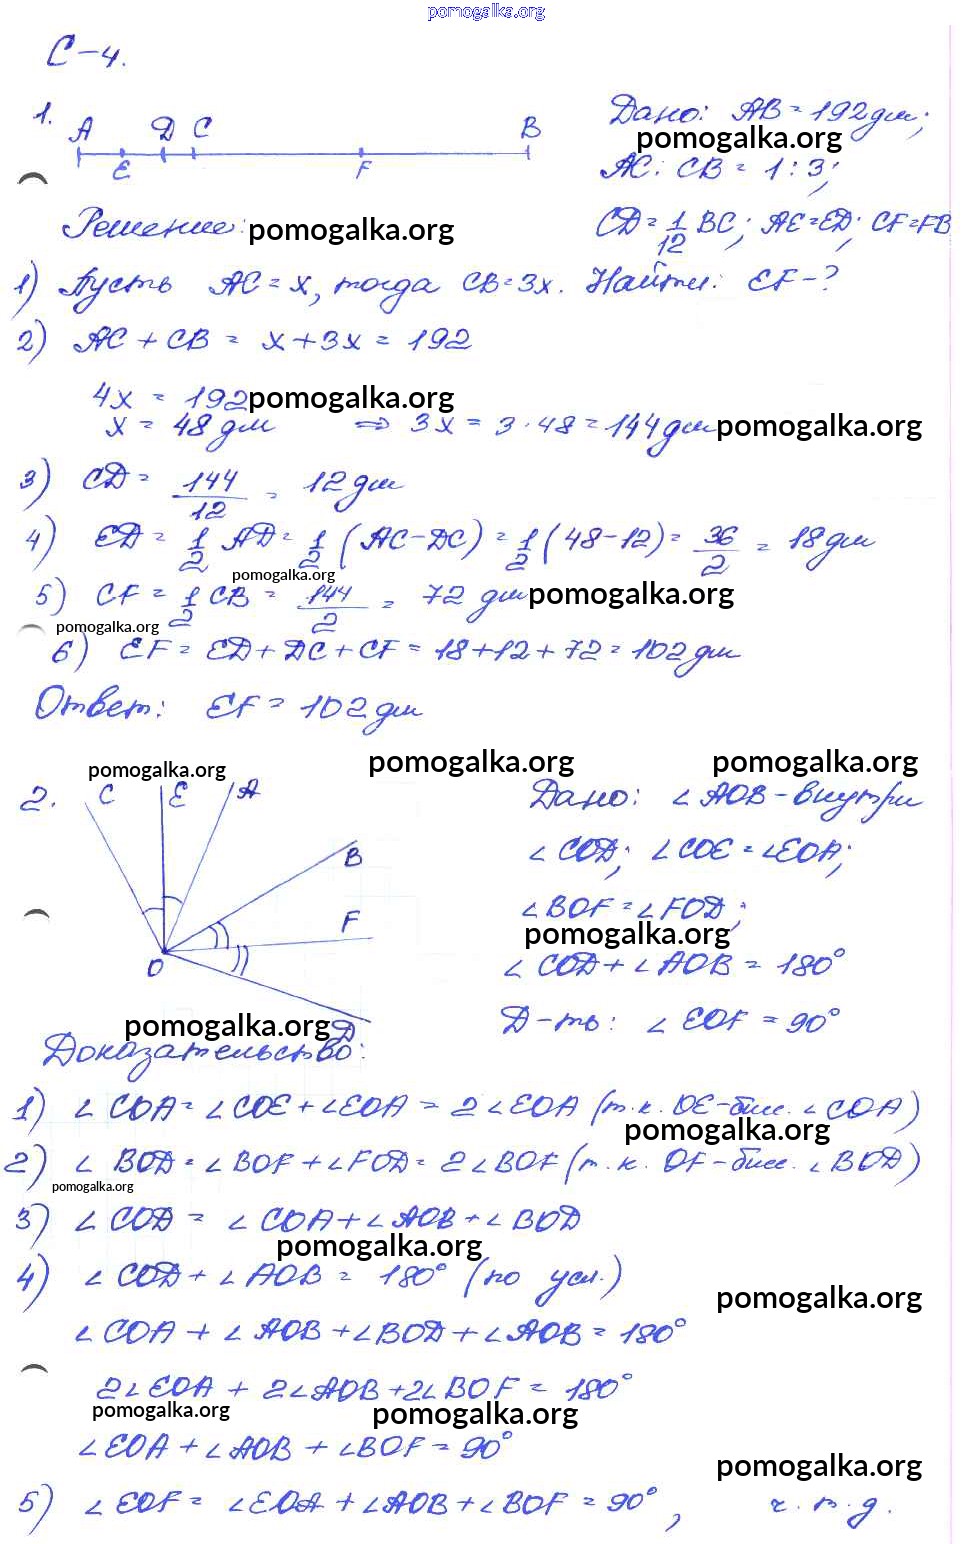 pomogalka.org
С-4.
1.
A D C B
E F
Дано: AB = 192 дм;
pomogalka.org
AC : CB = 1 : 3;
CD = 1/12 BC; AE = ED; CF = FB
Решение: pomogalka.org
1) Пусть AC = x, тогда CB = 3x. Найти: EF - ?
2) AC + CB = x + 3x = 192
4x = 192 pomogalka.org
x = 48 дм ⇒ 3x = 3 · 48 = 144 дм pomogalka.org
3) CD = 144/12 = 12 дм
4) ED = 1/2 AD = 1/2 (AC - DC) = 1/2 (48 - 12) = 36/2 = 18 дм
pomogalka.org
5) CF = 1/2 CB = 144/2 = 72 дм pomogalka.org
pomogalka.org
6) EF = ED + DC + CF = 18 + 12 + 72 = 102 дм
Ответ: EF = 102 дм
pomogalka.org pomogalka.org pomogalka.org
2.
C E A
B
F
O
D
Дано: ∠AOB - внутри
∠COD; ∠COE = ∠EOA;
∠BOF = ∠FOD;
pomogalka.org
∠COD + ∠AOB = 180°
Д-ть: ∠EOF = 90°
pomogalka.org
Доказательство:
1) ∠COA = ∠COE + ∠EOA = 2∠EOA (т.к. OE - бисс. ∠COA)
pomogalka.org
2) ∠BOD = ∠BOF + ∠FOD = 2∠BOF (т.к. OF - бисс. ∠BOD)
pomogalka.org
3) ∠COD = ∠COA + ∠AOB + ∠BOD
pomogalka.org
4) ∠COD + ∠AOB = 180° (по усл.)
pomogalka.org
∠COA + ∠AOB + ∠BOD + ∠AOB = 180°
2∠EOA + 2∠AOB + 2∠BOF = 180°
pomogalka.org pomogalka.org
∠EOA + ∠AOB + ∠BOF = 90°
pomogalka.org
5) ∠EOF = ∠EOA + ∠AOB + ∠BOF = 90°, ч.т.д.